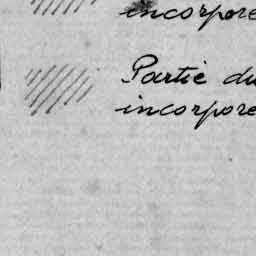 incorpore
Partie du
incorpore